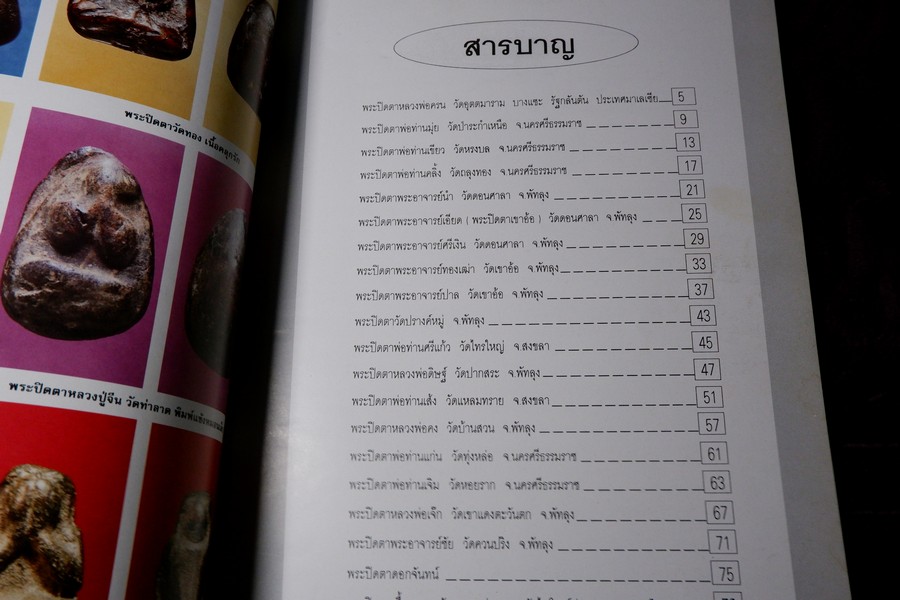 พระปิดตาวัดทอง เนื้อคลุกรัก
พระปิดตาหลวงปู่จีน วัดท่าลาด
สารบาญ
พระปิดตาหลวงพ่อครน วัดอุตตมาราม บางแซะ รัฐกลันตัน ประเทศมาเลเซีย 5
พระปิดตาพ่อท่านมุ่ย วัดป่าระกำเหนือ จ.นครศรีธรรมราช 9
พระปิดตาพ่อท่านเขียว วัดหรงบล จ.นครศรีธรรมราช 13
พระปิดตาพ่อท่านคลิ้ง วัดถลุงทอง จ.นครศรีธรรมราช 17
พระปิดตาพระอาจารย์นำ วัดดอนศาลา จ.พัทลุง 21
พระปิดตาพระอาจารย์เอียด ( พระปิดตาเขาอ้อ ) วัดดอนศาลา จ.พัทลุง 25
พระปิดตาพระอาจารย์ศรีเงิน วัดดอนศาลา จ.พัทลุง 29
พระปิดตาพระอาจารย์ทองเฒ่า วัดเขาอ้อ จ.พัทลุง 33
พระปิดตาพระอาจารย์ปาล วัดเขาอ้อ จ.พัทลุง 37
พระปิดตาวัดปรางค์หมู่ จ.พัทลุง 43
พระปิดตาพ่อท่านศรีแก้ว วัดไทรใหญ่ จ.สงขลา 45
พระปิดตาหลวงพ่อดิษฐ์ วัดปากสระ จ.พัทลุง 47
พระปิดตาพ่อท่านเส้ง วัดแหลมทราย จ.สงขลา 51
พระปิดตาหลวงพ่อคง วัดบ้านสวน จ.พัทลุง 57
พระปิดตาพ่อท่านแก่น วัดทุ่งหล่อ จ.นครศรีธรรมราช 61
พระปิดตาพ่อท่านเจิม วัดหอยราก จ.นครศรีธรรมราช 63
พระปิดตาหลวงพ่อเจ๊ก วัดเขาแดงตะวันตก จ.พัทลุง 67
พระปิดตาพระอาจารย์ชัย วัดควนปริง จ.พัทลุง 71
พระปิดตาดอกจันทน์ 75